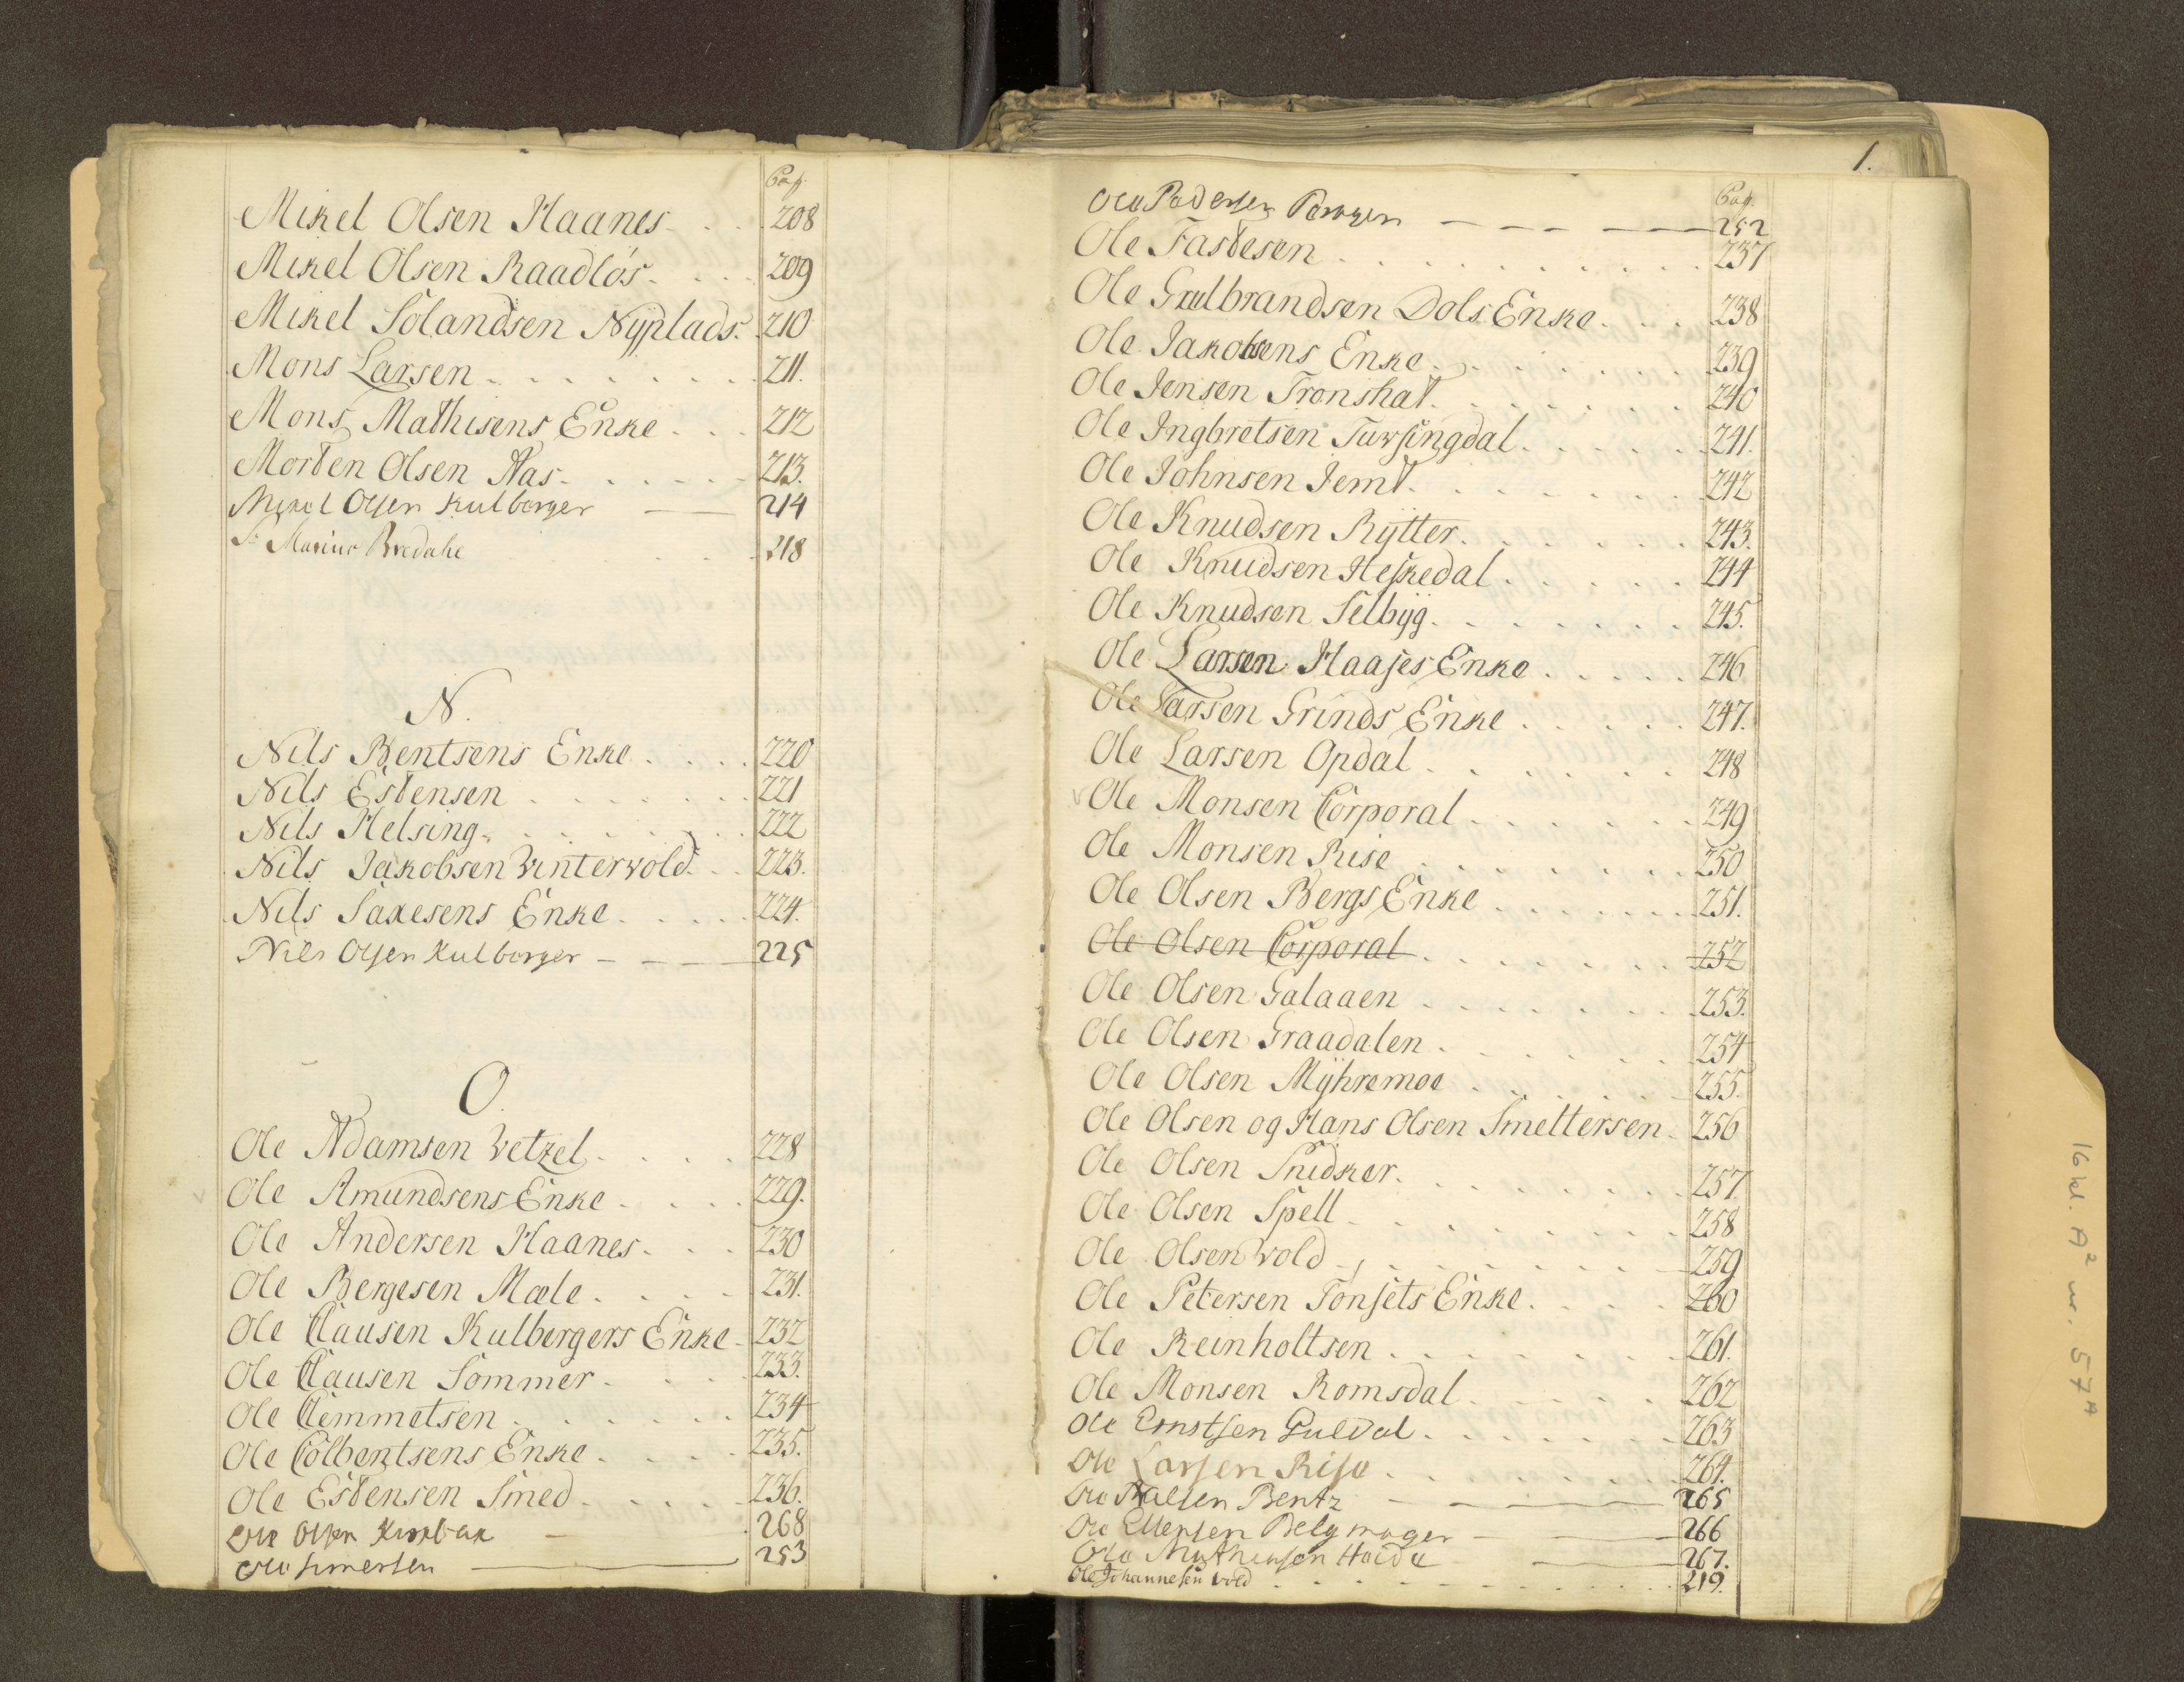 Pag.
Mikel Olsen Haanes . . . 208
Mikel Olsen Raadlös . . . 209
Mikel Solandsen Nÿplads. 210
Mons Larsen . . . . . . . . 211.
Mons Mathisens Enke . . . 212
Morten Olsen Aas . . . . . 213.
Mikel Olsen Kulberger — — 214
Sr Marius Bredahl . . . 218
N.
Nils Bentsens Enke . . . . 220
Nils Estensen . . . . . . . 221
Nils Helsing . . . . . . . 222
Nils Jakobsen Vintervold . . 223.
Nils Saxesens Enke . . . . . 224.
Nils Olsen Kulberger — — — 225
O.
Ole Adamsen Vetzel . . . . 228
Ole Amundsens Enke . . . . 229.
Ole Andersen Haanes . . . 230
Ole Bergesen Mæle . . . . 231.
Ole Clausen Kulbergers Enke - 232
Ole Clausen Sommer . . . . 233.
Ole Clemmetsen . . . . . . 234
Ole Colbentsens Enke . . . . 235.
Ole Estensen Smed . . . . . 236.
Ole Olsen — . 268
Ole — 253
1.
Pag.
Ole Pedersen — — — — 252
Ole Fastesen . . . . . . . . . . 237
Ole Gulbrandsen Dols Enke . . . 238
Ole Jakobsens Enke . . . . . . . 239
Ole Jensen Tronshat . . . . . . . 240
Ole Ingbretsen Tursingdal . . . . . 241.
Ole Johnsen Jemt . . . . . . . 242
Ole Knudsen Rÿtter . . . . . . . 243.
Ole Knudsen Heskedal . . . . . . 244
Ole Knudsen Selbÿg . . . . . . . 245.
Ole Larsen Haajes Enke . . . . . 246
Ole Larsen Grinds Enke . . . . . 247.
Ole Larsen Opdal . . . . . . . 248
Ole Monsen Corporal . . . . . . 249
Ole Monsen Rise . . . . . . . . 250
Ole Olsen Bergs Enke . . . . . . . 251.
Ole Olsen Corporal . . . . . . . 252
Ole Olsen Galaaen . . . . . . . 253.
Ole Olsen Graadalen . . . . . . 254
Ole Olsen Mÿhremoe . . . . . . 255.
Ole Olsen og Hans Olsen Smeltersen . 256
Ole Olsen Snidker . . . . . . . . 257.
Ole Olsen Spell . . . . . . . . 258
Ole Olsen Vold . . . . . . . . 259
Ole Petersen Tonsets Enke . . . . 260
Ole Reinholtsen . . . . . . . . 261.
Ole Monsen Romsdal . . . . . 262
Ole Ernstsen Guldal . . . . . . . 263
Ole Larsen Rise . . . . . . . . 264.
Ole Bentz — — — 265
Ole Ellersen — — 266
Ole Mathiesen — 267.
Ole Johannesen Vold . . . . . . . . 219.
16 kl. A² nr. 57 A